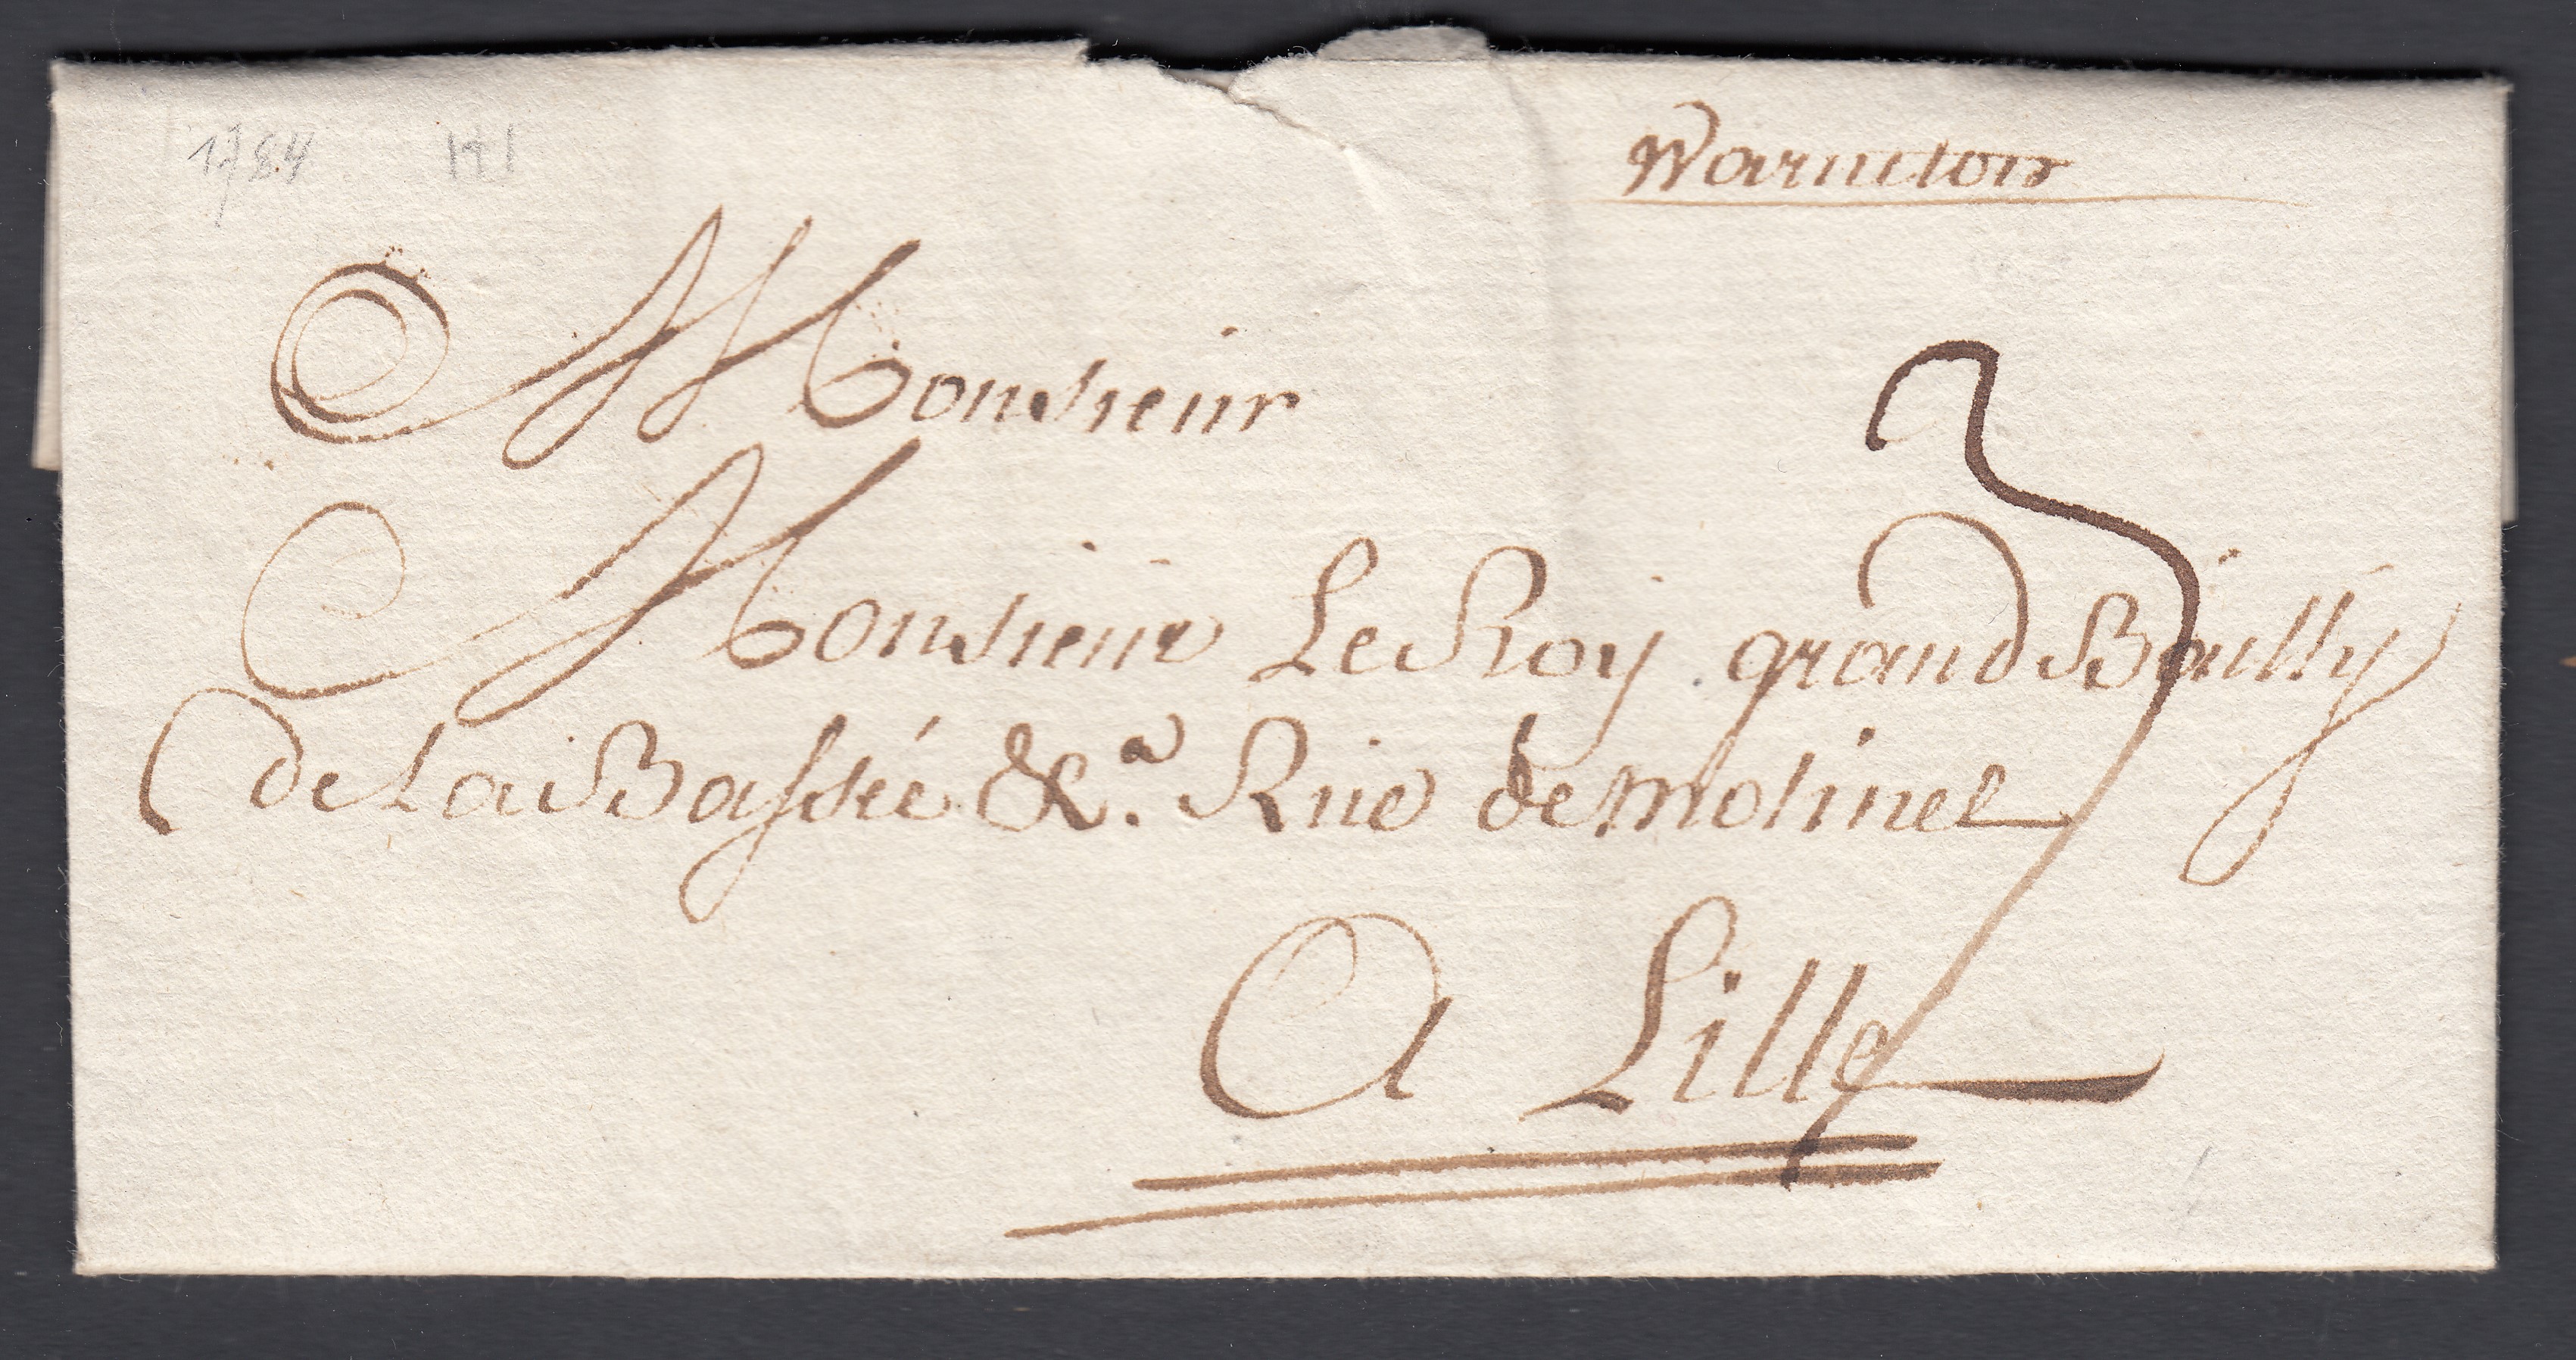 1784
Warneton
Monsieur
Monsieur Le Roy grand Bailly
de La Bassée &.a Rue de molinel
A Lille
3